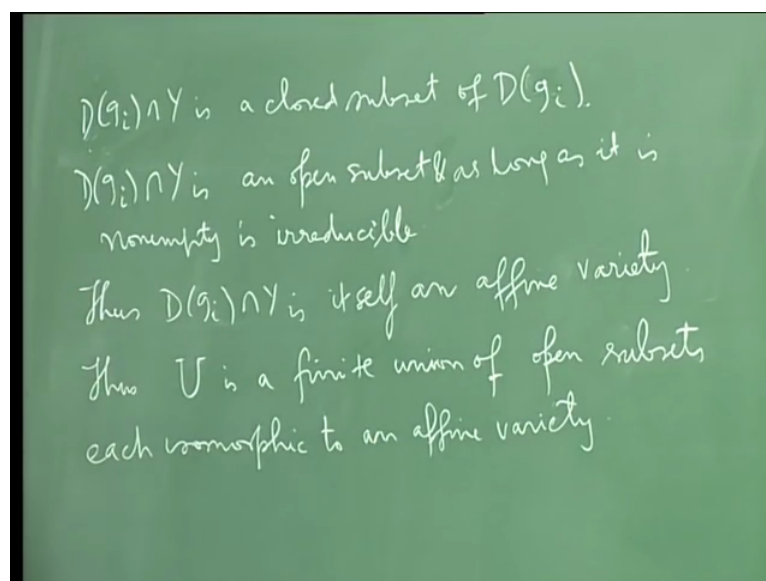 D(gᵢ)∩Y is a closed subset of D(gᵢ).
D(gᵢ)∩Y is an open subset & as long as it is
nonempty is irreducible
Thus D(gᵢ)∩Y is itself an affine variety.
Thus U is a finite union of open subsets
each isomorphic to an affine variety.